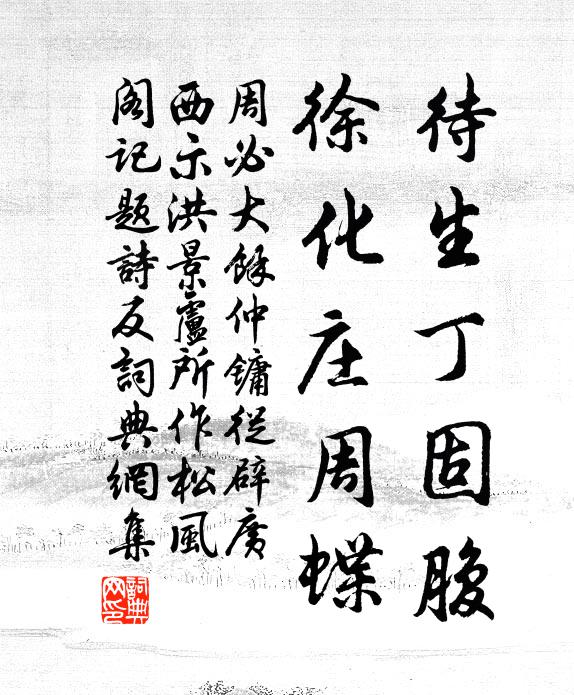 待生丁固腹
徐化庄周蝶
周必大馀仲镛從辟廣
西示洪景廬所作松風
阁记题詩反詞典網集